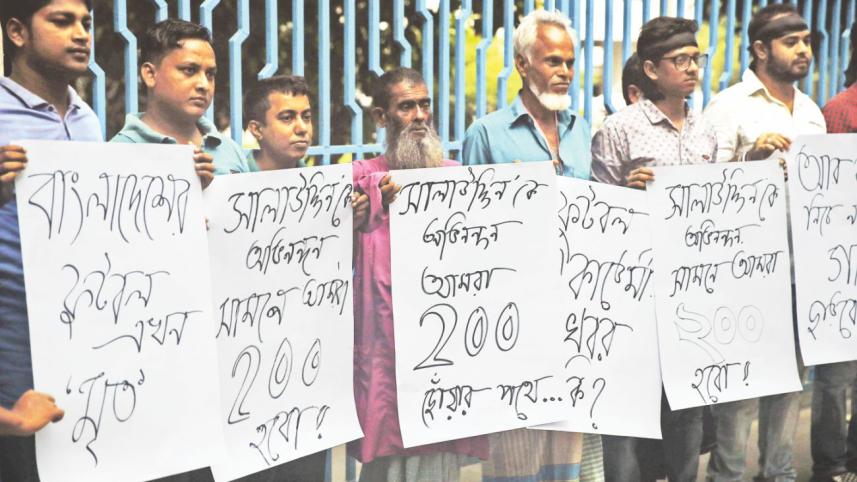 বাংলাদেশের
ফুটবল
এখন
'মৃত'
সালাউদ্দিন কে
অভিনন্দন
সামনে আমরা
200
হবো র
সালাউদ্দিন কে
অভিনন্দন
আমরা
200
ছোঁয়ার পথে... কি?
ফুটবল
খবর
সালাউদ্দিন কে
অভিনন্দন
সামনে আমরা
২০০
হবো র
আর